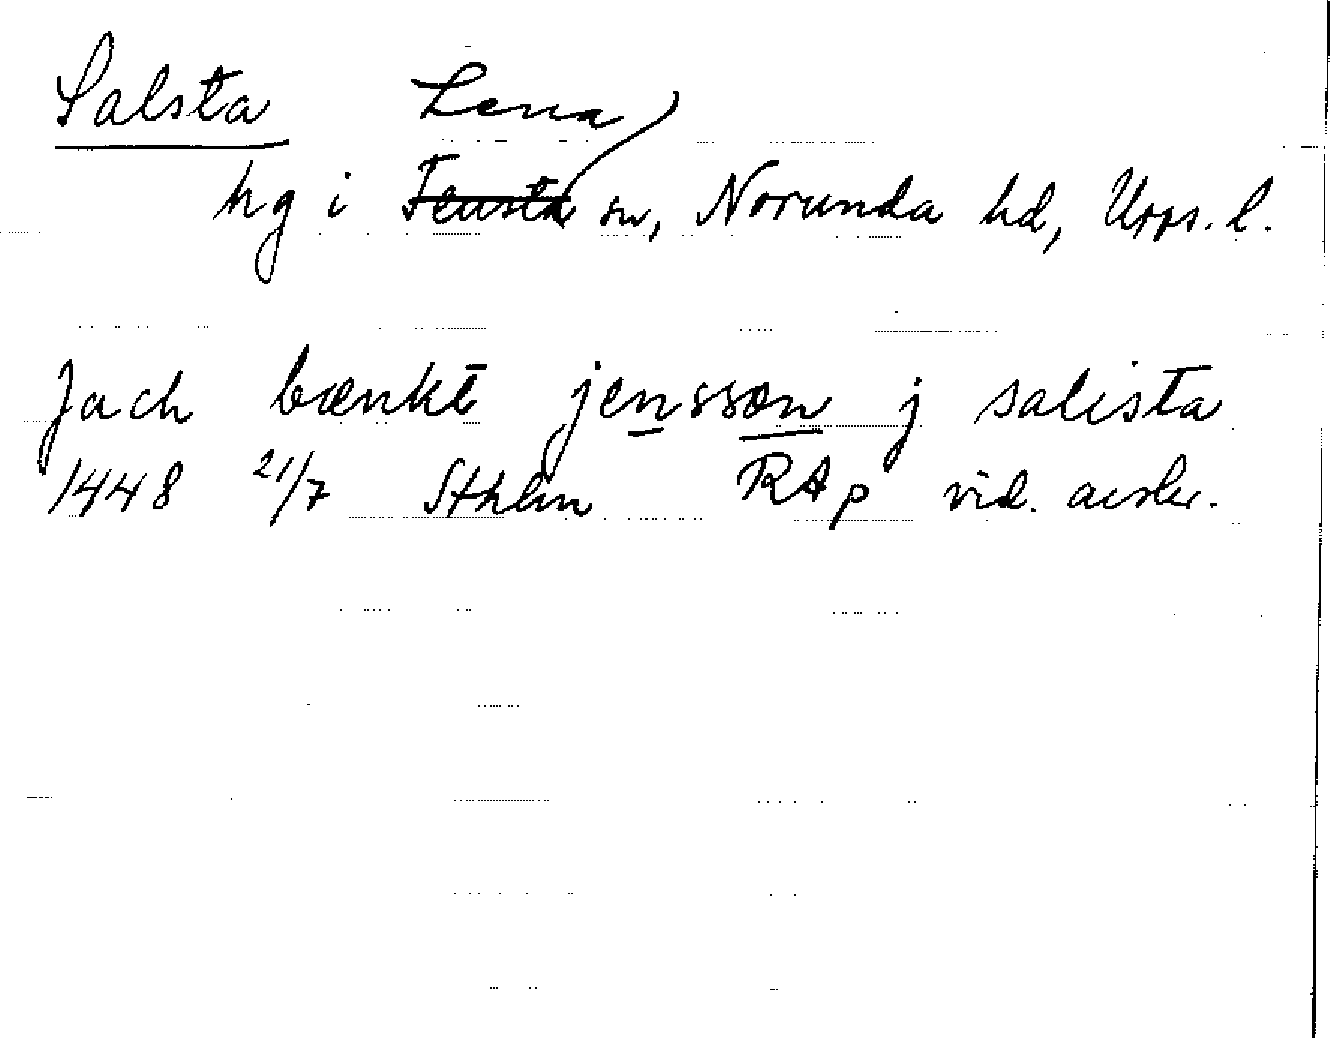 Salsta Lena
hg i Tensta sn, Norunda hd, Upps. l.
Jach bænkt jensson j salista
1448 21/7 Sthlm RA p vid. avskr.